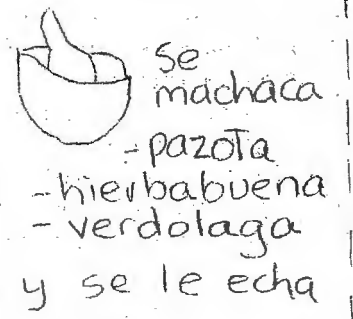 se
machaca
- pazota
- hierbabuena
- verdolaga
y se le echa